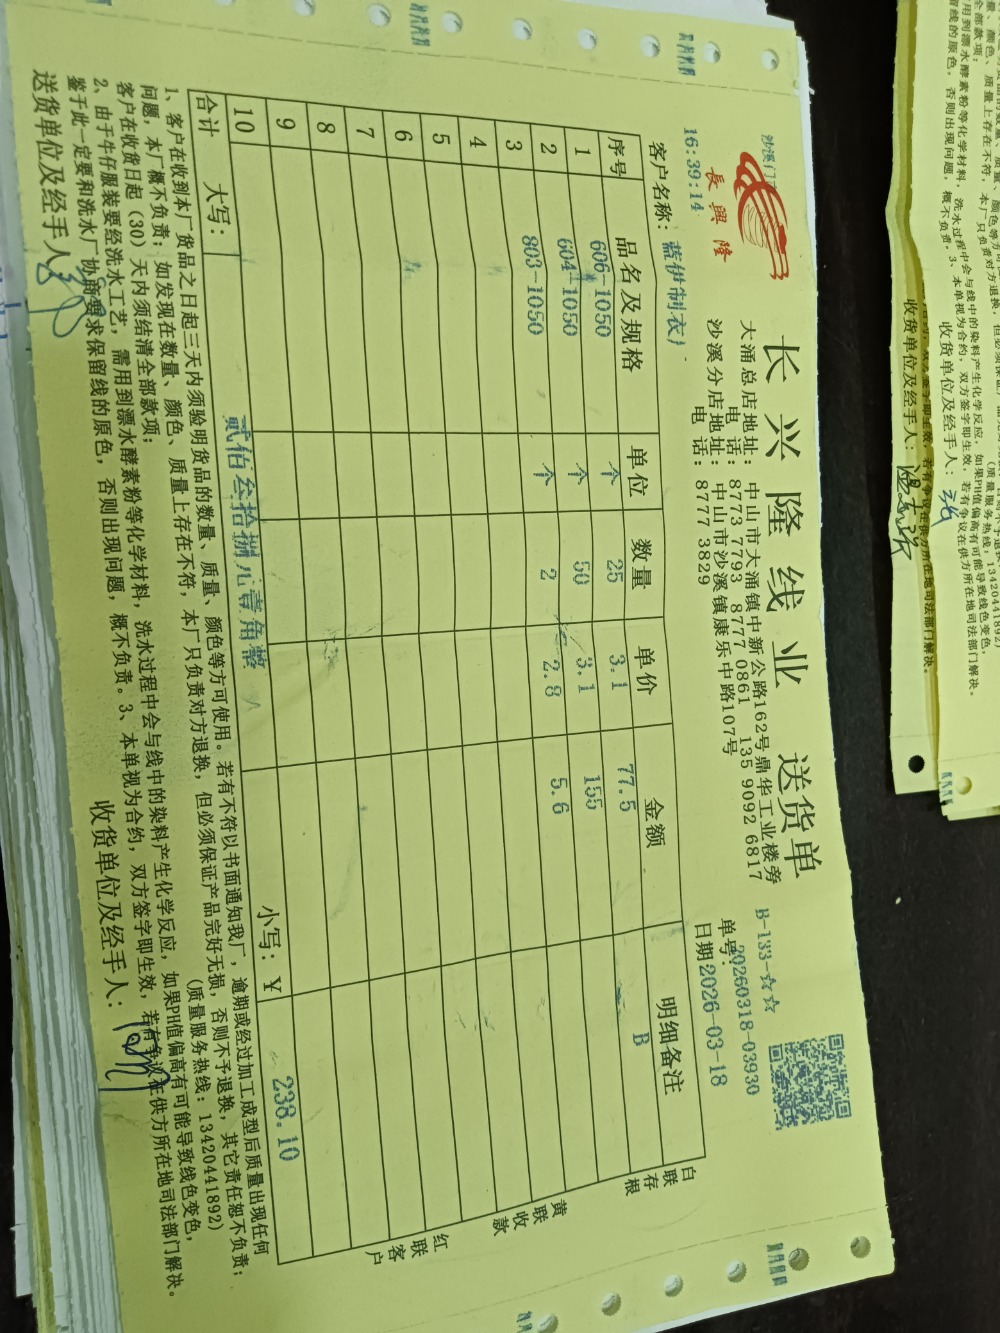 沙溪门市
長興隆
16:39:14
长兴隆线业 送货单
大涌总店地址：中山市大涌镇中新公路162号鼎华工业楼旁
电话：8773 7793 8777 0861 135 9092 6817
沙溪分店地址：中山市沙溪镇康乐中路107号
电话：8777 3829
B-133-☆☆
单号：20260318-03930
日期：2026-03-18
客户名称：蓝伊制衣
序号 品名及规格 单位 数量 单价 金额 明细备注
1 606-1050 个 25 3.1 77.5 B
2 604-1050 个 50 3.1 155
3 803-1050 个 2 2.8 5.6
4
5
6
7
8
9
10
合计 大写： 贰佰叁拾捌元壹角整 小写：￥ 238.10
白联存根
黄联收款
红联客户
1、客户在收到本厂货品之日起三天内须验明货品的数量、质量、颜色等方可使用。若有不符以书面通知我厂，逾期或经过加工成型后质量出现任何
问题，本厂概不负责；如发现在数量、颜色、质量上存在不符，本厂只负责对方退换，但必须保证产品完好无损，否则不予退换，其它责任恕不负责；
客户在收货日起（30）天内须结清全部款项； （质量服务热线：13420441892）
2、由于牛仔服装要经洗水工艺，需用到漂水酵素粉等化学材料，洗水过程中会与线中的染料产生化学反应，如果PH值偏高有可能导致线色变色，
鉴于此一定要和洗水厂协商要求保留线的原色，否则出现问题，概不负责。3、本单视为合约，双方签字即生效，若有争议在供方所在地司法部门解决。
送货单位及经手人： 收货单位及经手人：
收货单位及经手人：
收货单位及经手人：